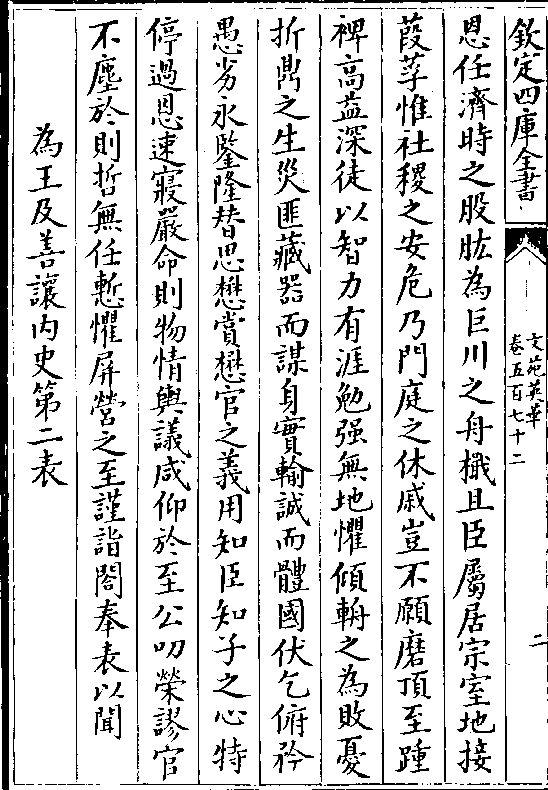 欽定四庫全書
文苑英華
卷五百七十二
二
恩任濟時之股肱為巨川之舟檝且臣屬居宗室地接
葭莩惟社稷之安危乃門庭之休戚豈不願磨頂至踵
裨高益深徒以智力有涯勉强無地懼傾輈之為敗憂
折鼎之生災匪藏器而謀身實輸誠而體國伏乞俯矜
愚劣永鑒隆替思懋賞懋官之義用知臣知子之心特
停過恩速寢嚴命則物情輿議咸仰於至公叨榮謬官
不塵於則哲無任慙懼屏營之至謹詣閤奉表以聞
為王及善讓内史第二表